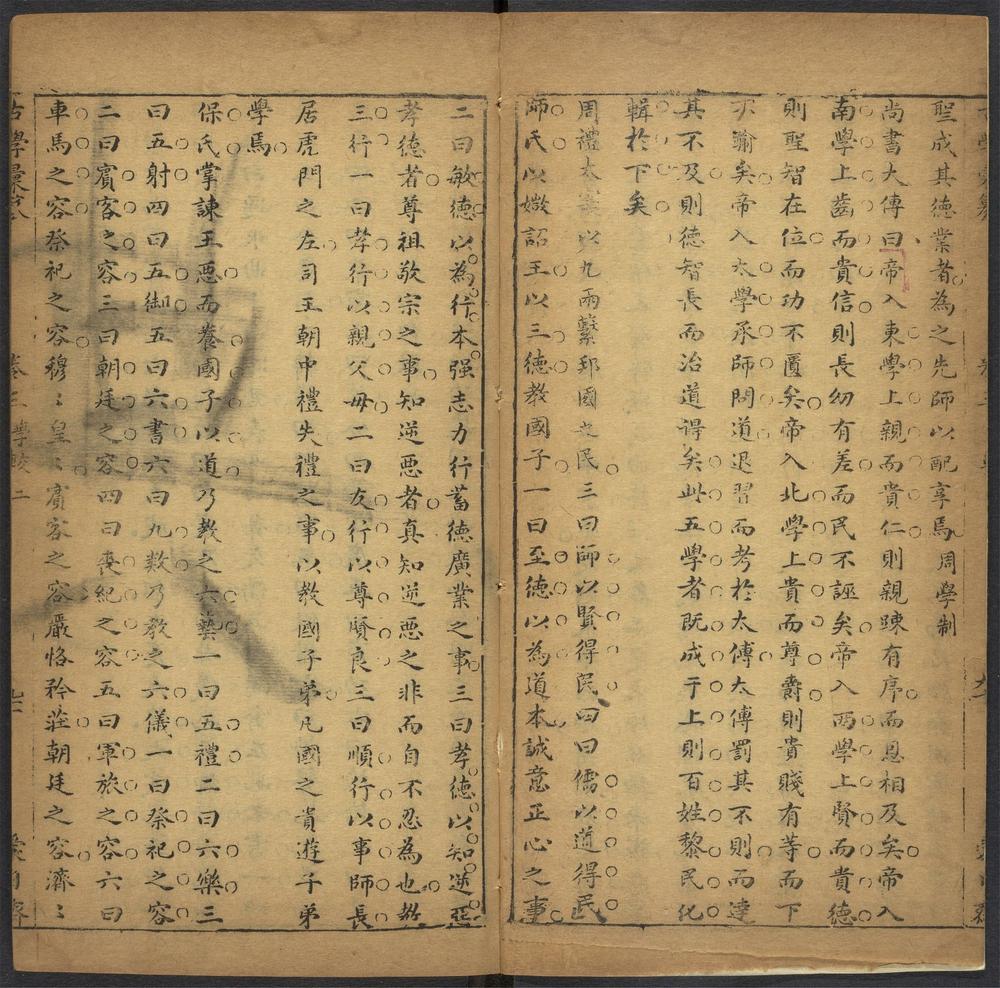 聖成其德業者為之先師以配享焉周學制
尚書大傳曰帝入東學上親而貴仁則親踈有序而恩相及矣帝入
南學上齒而貴信則長幼有差而民不誣矣帝入西學上賢而貴德
則聖智在位而功不匱矣帝入北學上貴而尊爵則貴賤有等而下
不踰矣帝入太學承師問道退習而考於太傅太傅罰其不則而達
其不及則德智長而治道得矣此五學者既成于上則百姓黎民化
輯於下矣
周禮太宰以九兩繫邦國之民三曰師以賢得民四曰儒以道得民
師氏以媺詔王以三德教國子一曰至德以為道本誠意正心之事
二曰敏德以為行本强志力行蓄德廣業之事三曰孝德以知逆惡
孝德者尊祖敬宗之事知逆惡者真知逆惡之非而自不忍為也教
三行一曰孝行以親父母二曰友行以尊賢良三曰順行以事師長
居虎門之左司王朝中禮失禮之事以教國子弟凡國之貴遊子弟
學焉
保氏掌諫王惡而養國子以道乃教之六藝一曰五禮二曰六樂三
曰五射四曰五御五曰六書六曰九數乃教之六儀一曰祭祀之容
二曰賓客之容三曰朝廷之容四曰喪紀之容五曰軍旅之容六曰
車馬之容祭祀之容穆〻皇〻賓客之容嚴恪矜莊朝廷之容濟〻
古學彙纂 卷三學校二